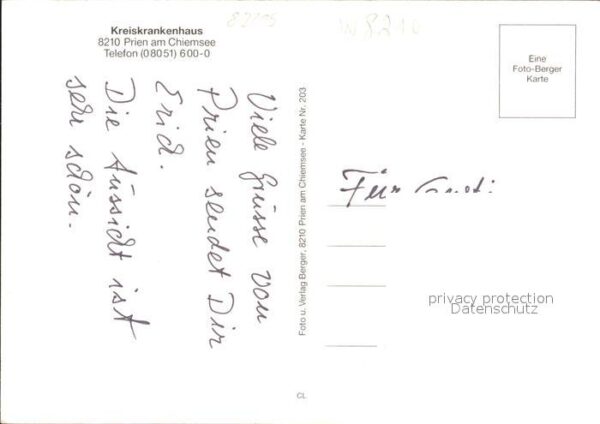 82215
W 8210
Kreiskrankenhaus
8210 Prien am Chiemsee
Telefon (08051) 600-0
Viele Grüsse von
Prien sendet Dir
Erid.
Die Aussicht ist
sehr schön.
Foto u. Verlag Berger, 8210 Prien am Chiemsee - Karte Nr. 203
Eine
Foto-Berger
Karte
Für
privacy protection
Datenschutz
CL